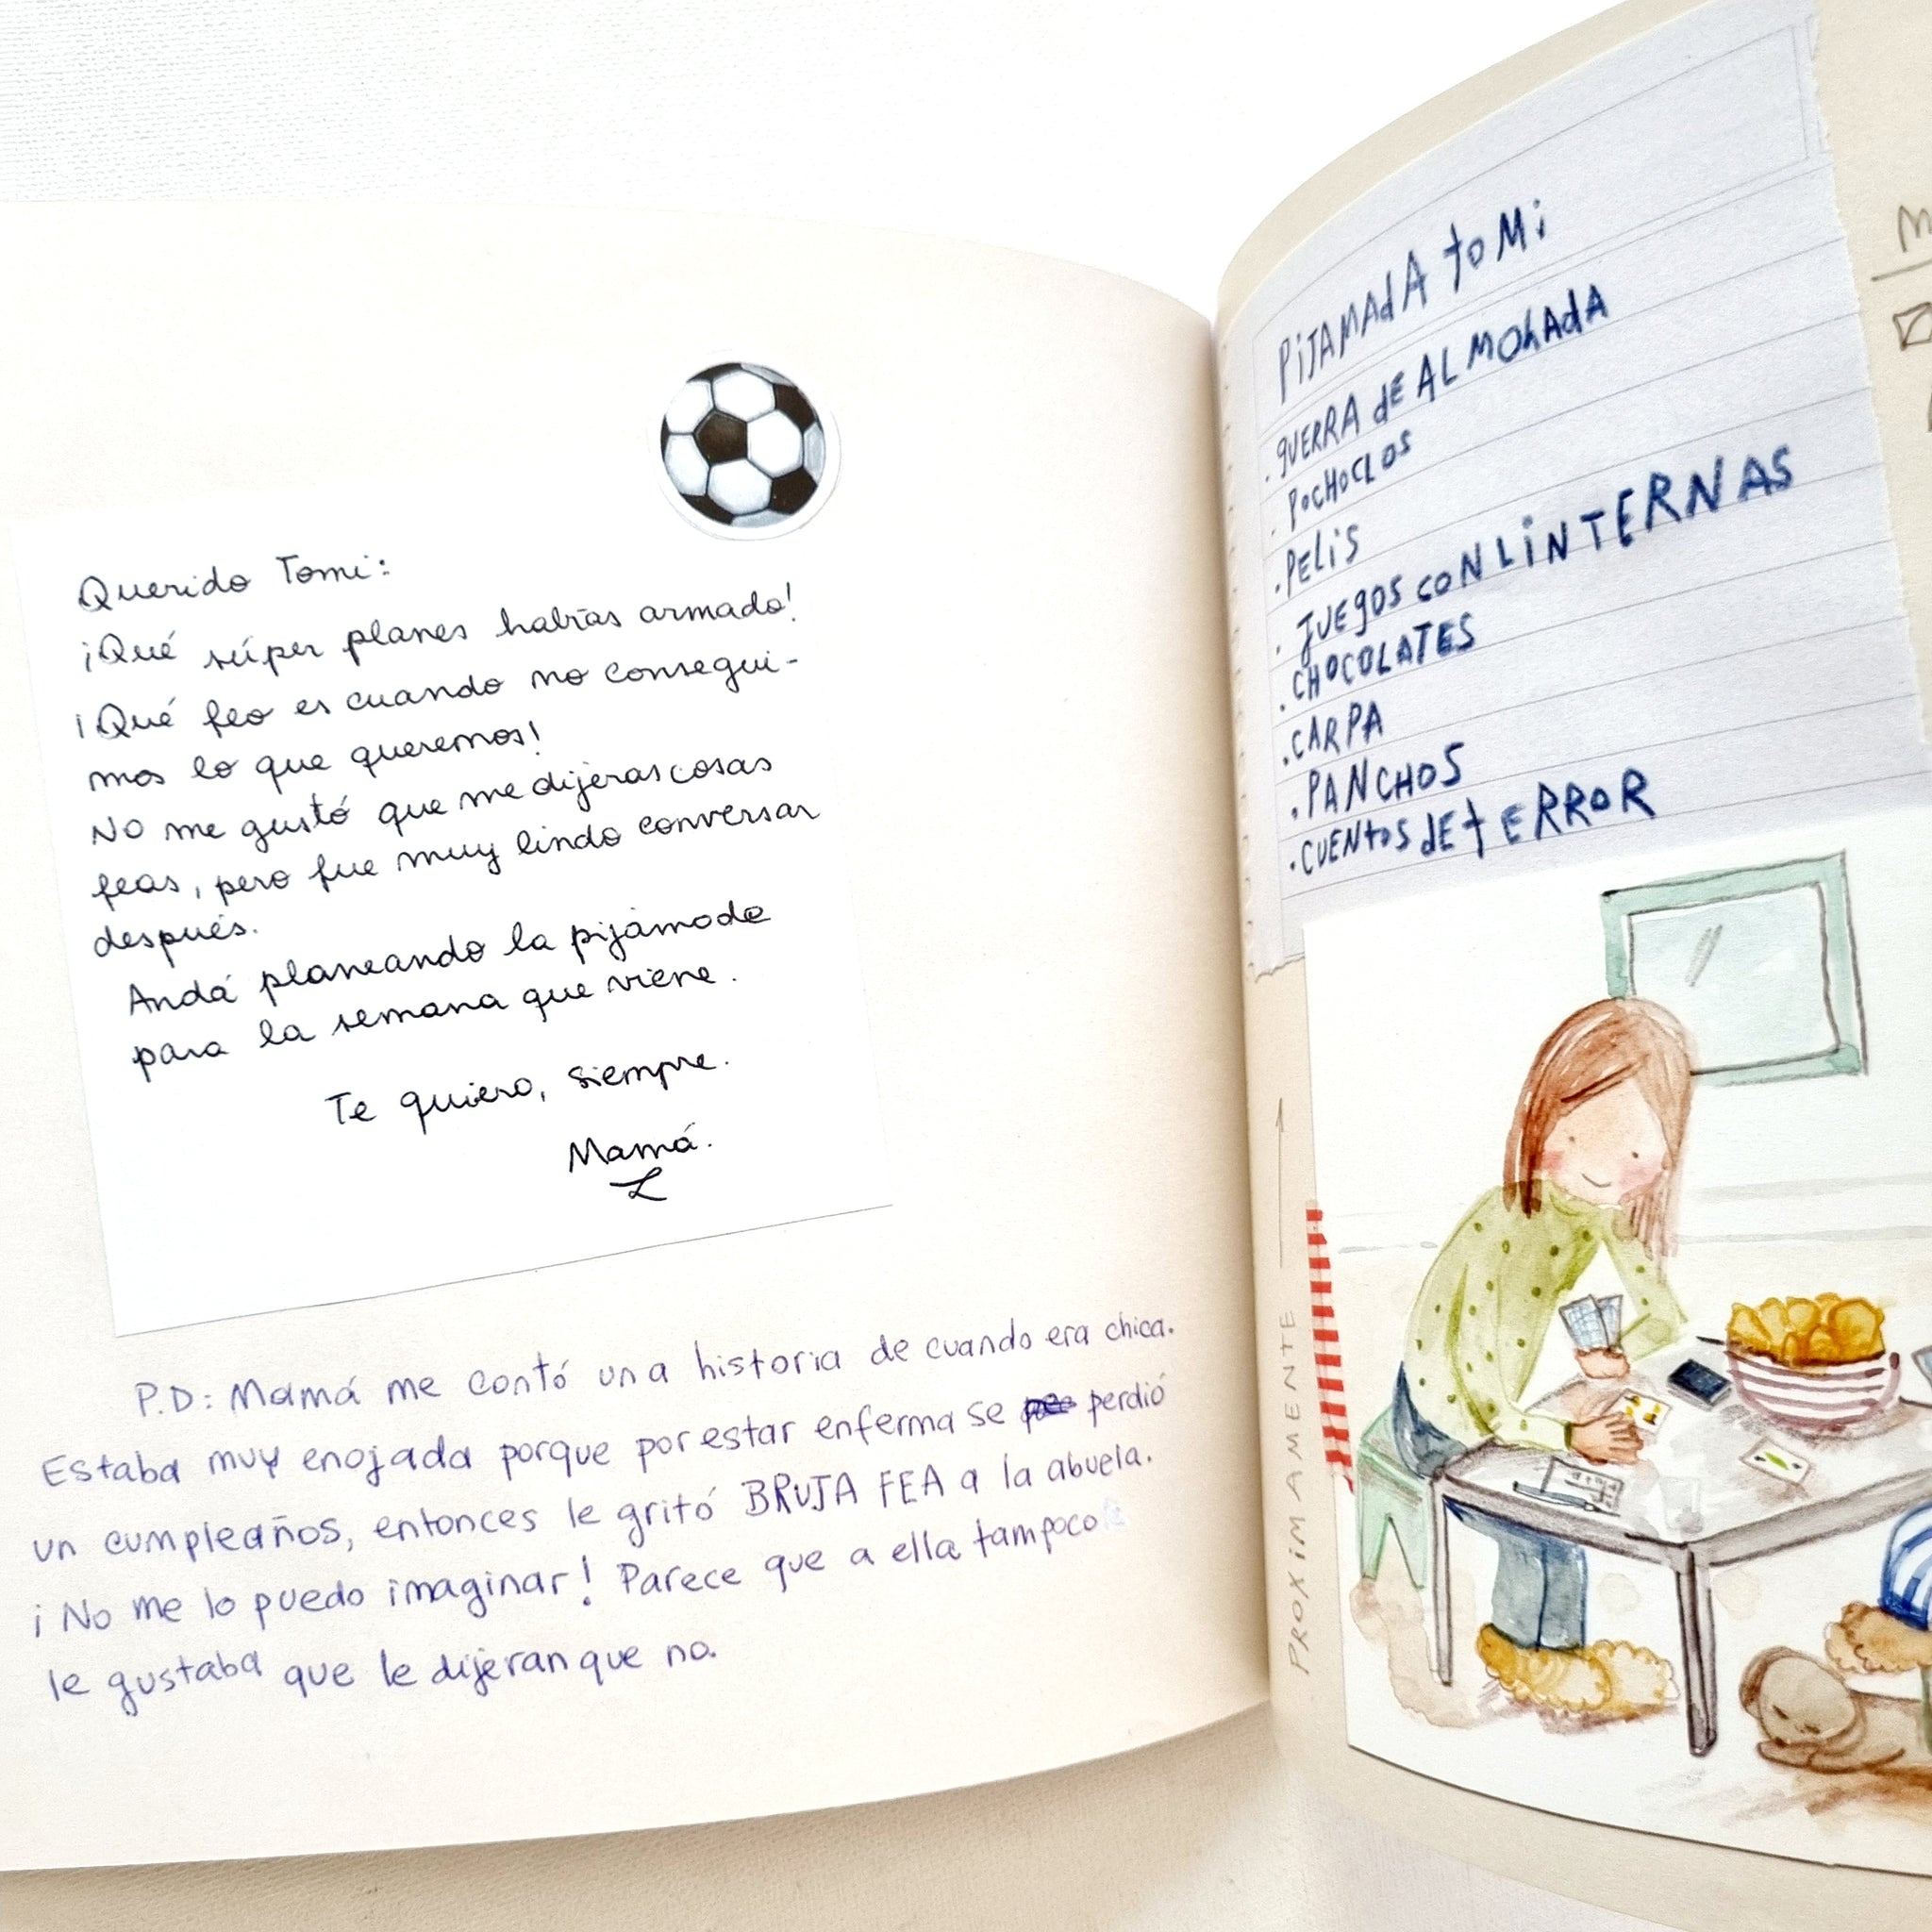 Querido Tomi:
¡Qué súper planes habías armado!
¡Qué feo es cuando no consegui-
mos lo que queremos!
No me gustó que me dijeras cosas
feas, pero fue muy lindo conversar
después.
Andá planeando la pijamada
para la semana que viene.
Te quiero, siempre.
Mamá.
P.D: Mamá me contó una historia de cuando era chica.
Estaba muy enojada porque por estar enferma se perdió
un cumpleaños, entonces le gritó BRUJA FEA a la abuela.
¡No me lo puedo imaginar! Parece que a ella tampoco
le gustaba que le dijeran que no.
PiJAMAdA toMi
. gUERRA dE ALMOhAdA
. POCHOCLOS
. PELiS
. JUEgOS CON LiNTERNAS
. CHOCOLATES
. CARPA
. PANCHOS
. CUENtOS dE tERROR
PROXiMAMENTE